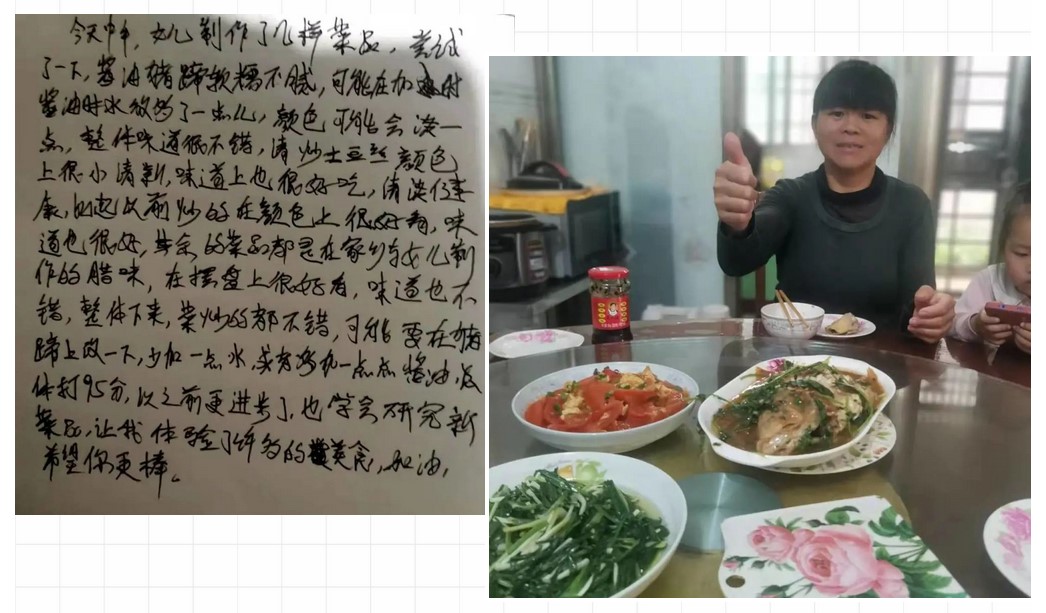 今天中午，女儿制作了几样菜品，尝试
了一下，酱油猪蹄软糯不腻，可能在加
酱油时水放多了一点儿，颜色可能会淡一
点，整体味道很不错，清炒土豆丝颜色
上很小清新，味道上也很好吃，清淡
康，以前炒的在颜色上很好看，味
道也很好，其余的菜品都是在家乡与女儿制
作的腊味，在摆盘上很好看，味道也不
错，整体下来，菜炒的都不错，可能要在猪
蹄上改一下，少加一点水，或者多加一点点酱油，
体打95分，比之前更进步了，也学会研究新
菜品，让我体验了许多的美食，加油，
希望你更棒。